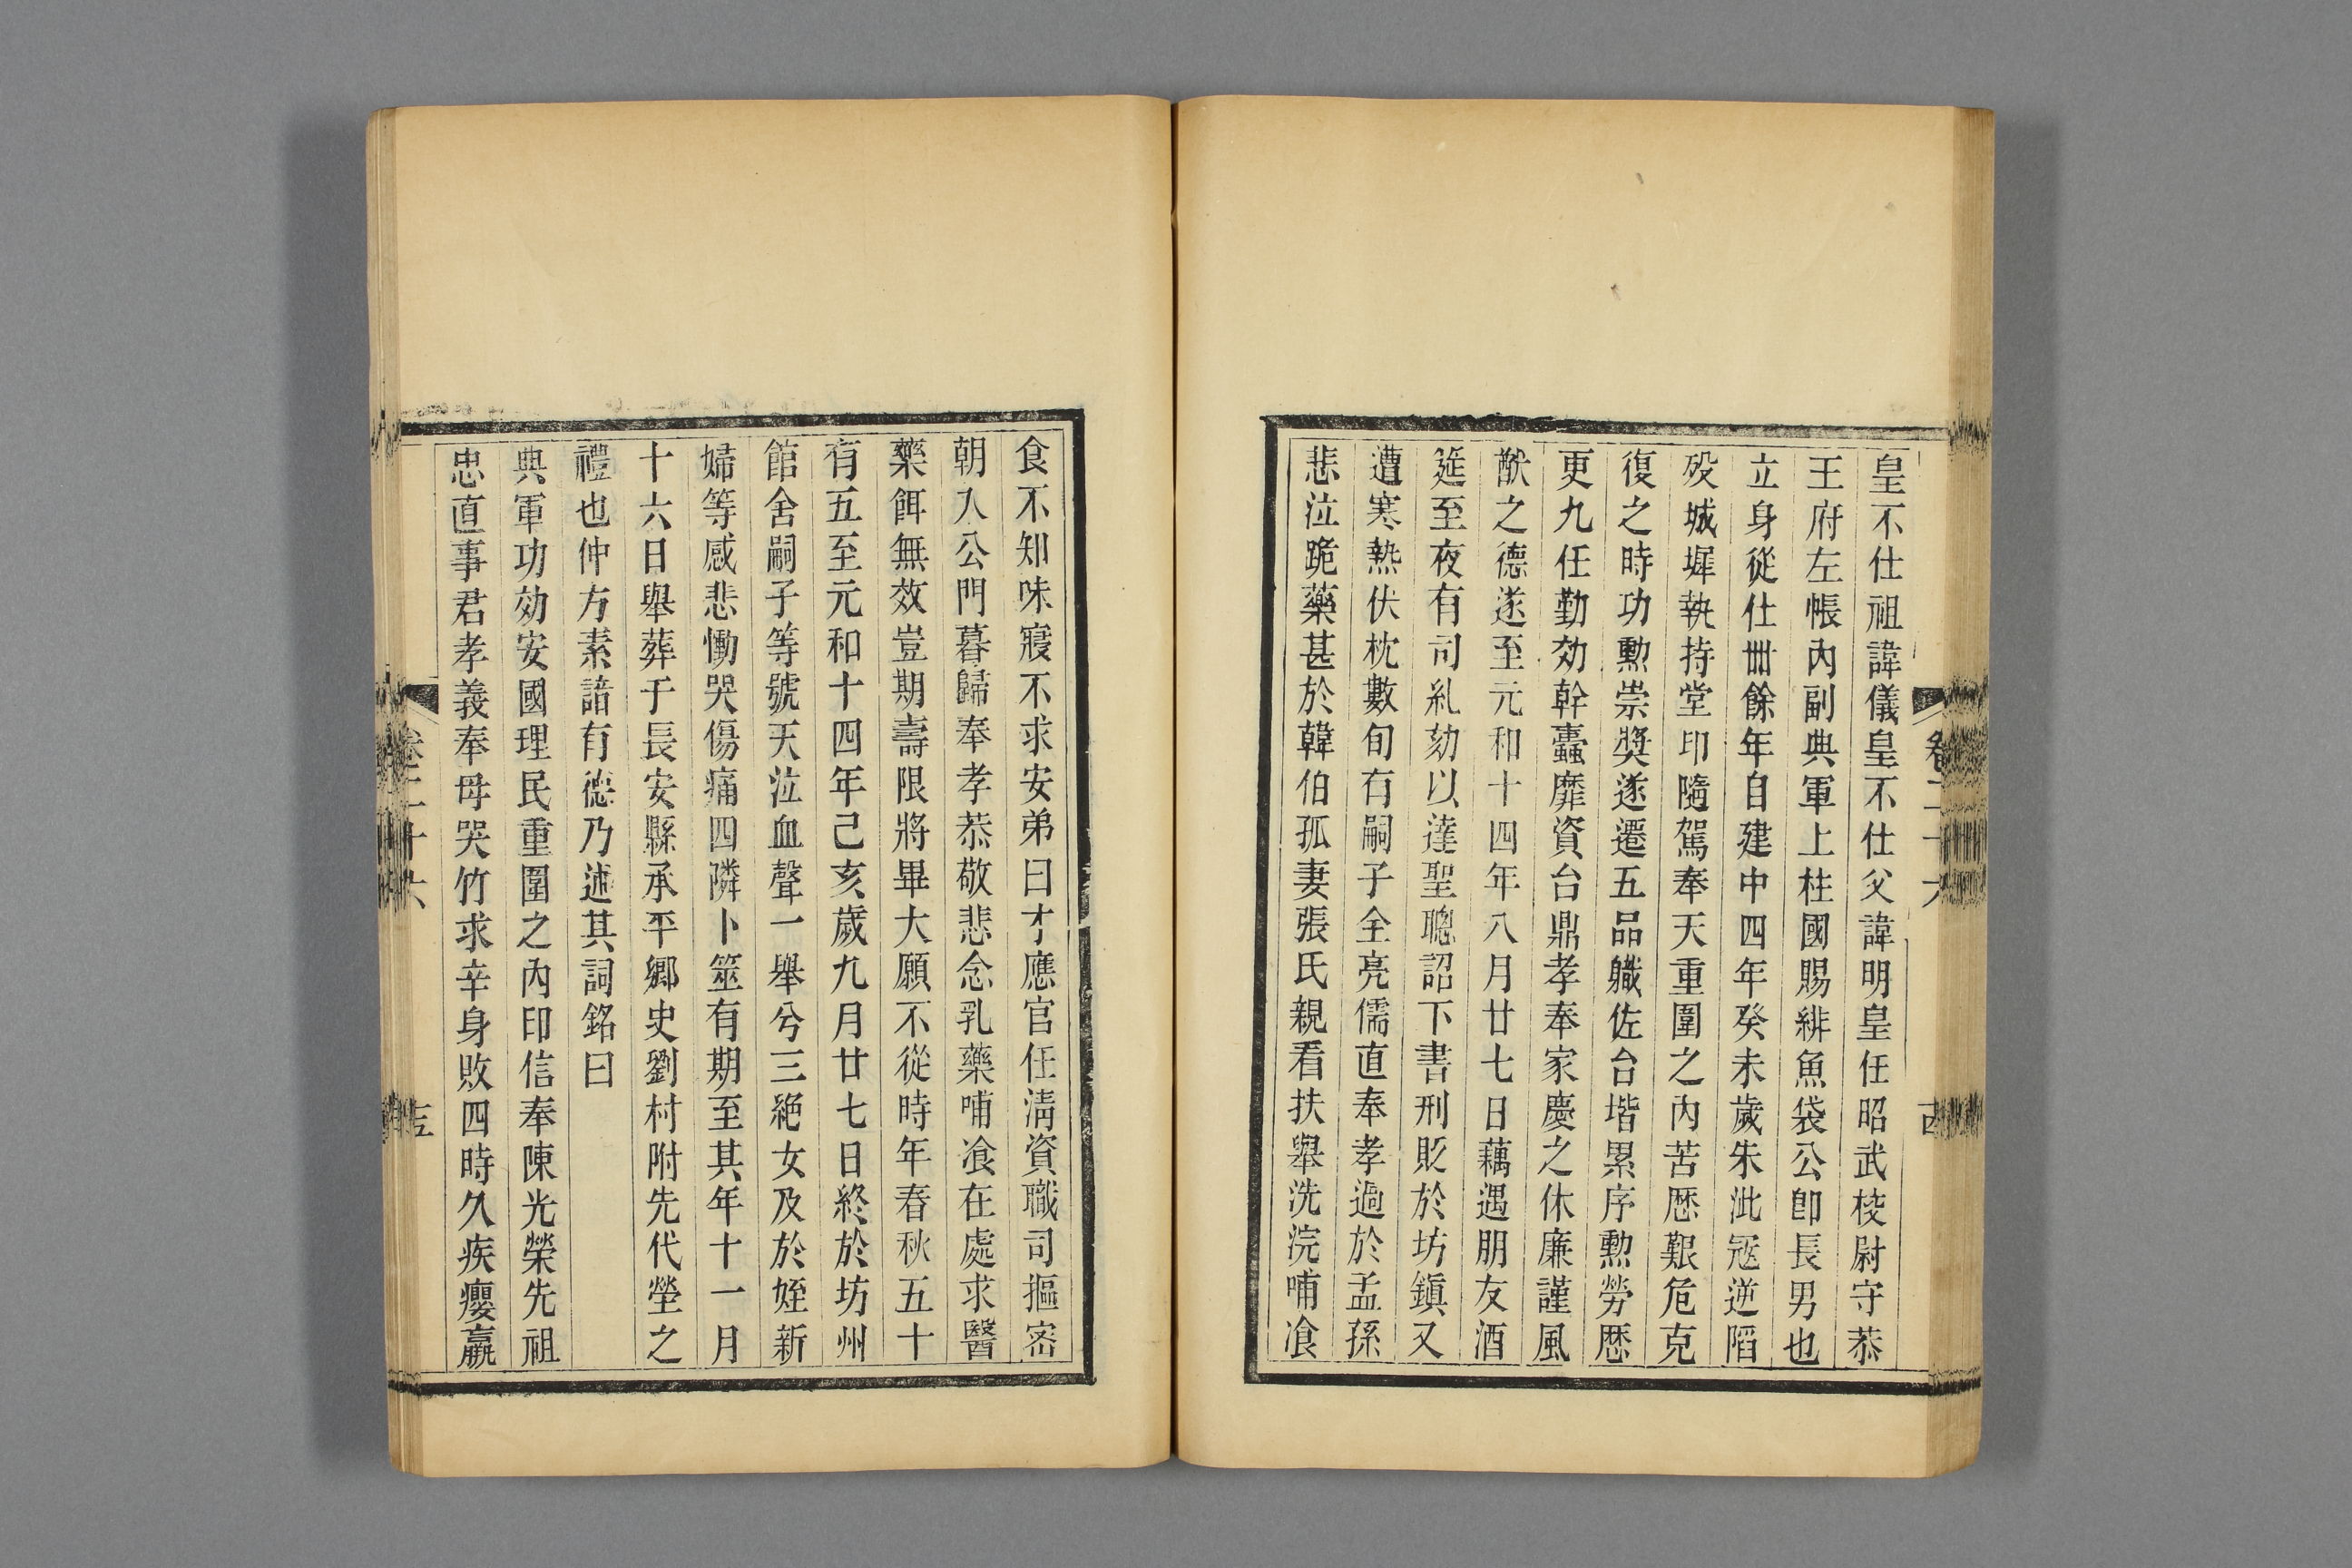 皇不仕祖諱儀皇不仕父諱明皇任昭武校尉守恭
王府左帳內副典軍上柱國賜緋魚袋公卽長男也
立身從仕卌餘年自建中四年癸未歲朱泚冦逆陷
歿城墀執持堂印隨駕奉天重圍之內苦歴艱危克
復之時功勳崇奬遂遷五品軄佐台堦累序勲勞歴
更九任勤効幹蠧靡資台鼎孝奉家慶之休廉謹風
猷之德遂至元和十四年八月廿七日藕遇朋友酒
筵至夜有司糺劾以達聖聰詔下書刑貶於坊鎭又
遭寒熱伏枕數旬有嗣子全亮儒直奉孝過於孟孫
悲泣跪藥甚於韓伯孤妻張氏親看扶舉洗浣哺飡
食不知味寢不求安弟曰才應官任淸資職司摳宻
朝入公門暮歸奉孝恭敬悲念乳藥哺飡在處求醫
藥餌無效豈期壽限將畢大願不從時年春秋五十
有五至元和十四年己亥歲九月廿七日終於坊州
館舍嗣子等號天泣血聲一舉兮三絶女及於姪新
婦等感悲慟哭傷痛四隣卜筮有期至其年十一月
十六日舉葬于長安縣承平鄉史劉村附先代塋之
禮也仲方素諳有德乃述其詞銘曰
典軍功効安國理民重圍之內印信奉陳光榮先祖
忠直事君孝義奉母哭竹求辛身敗四時久疾癭羸
卷二十六